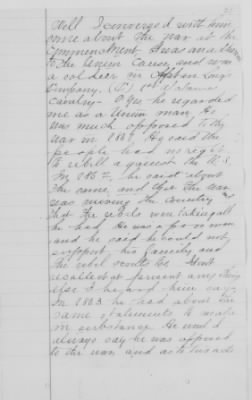 Well I conversed with him
some about the war at the
commencement. I was and
to the Union Cause, and was
a soldier in
Company (D) 1st Alabama
Cavalry - Yes he regarded
me as a Union man, he
was much opposed to the
war in 1861. He said the
people had no right
to rebell against the U.S.
In 1862, he said about
the same, and that the war
was ruining the country
that the rebels were taking all
he had. He was a poor man
and he said he could not
support his family and
the rebel
recollect at present any thing
else I heard him say.
In 1863 he had about the
same statements to make
in substance. He would
always say he was opposed
to the war and as to his acts